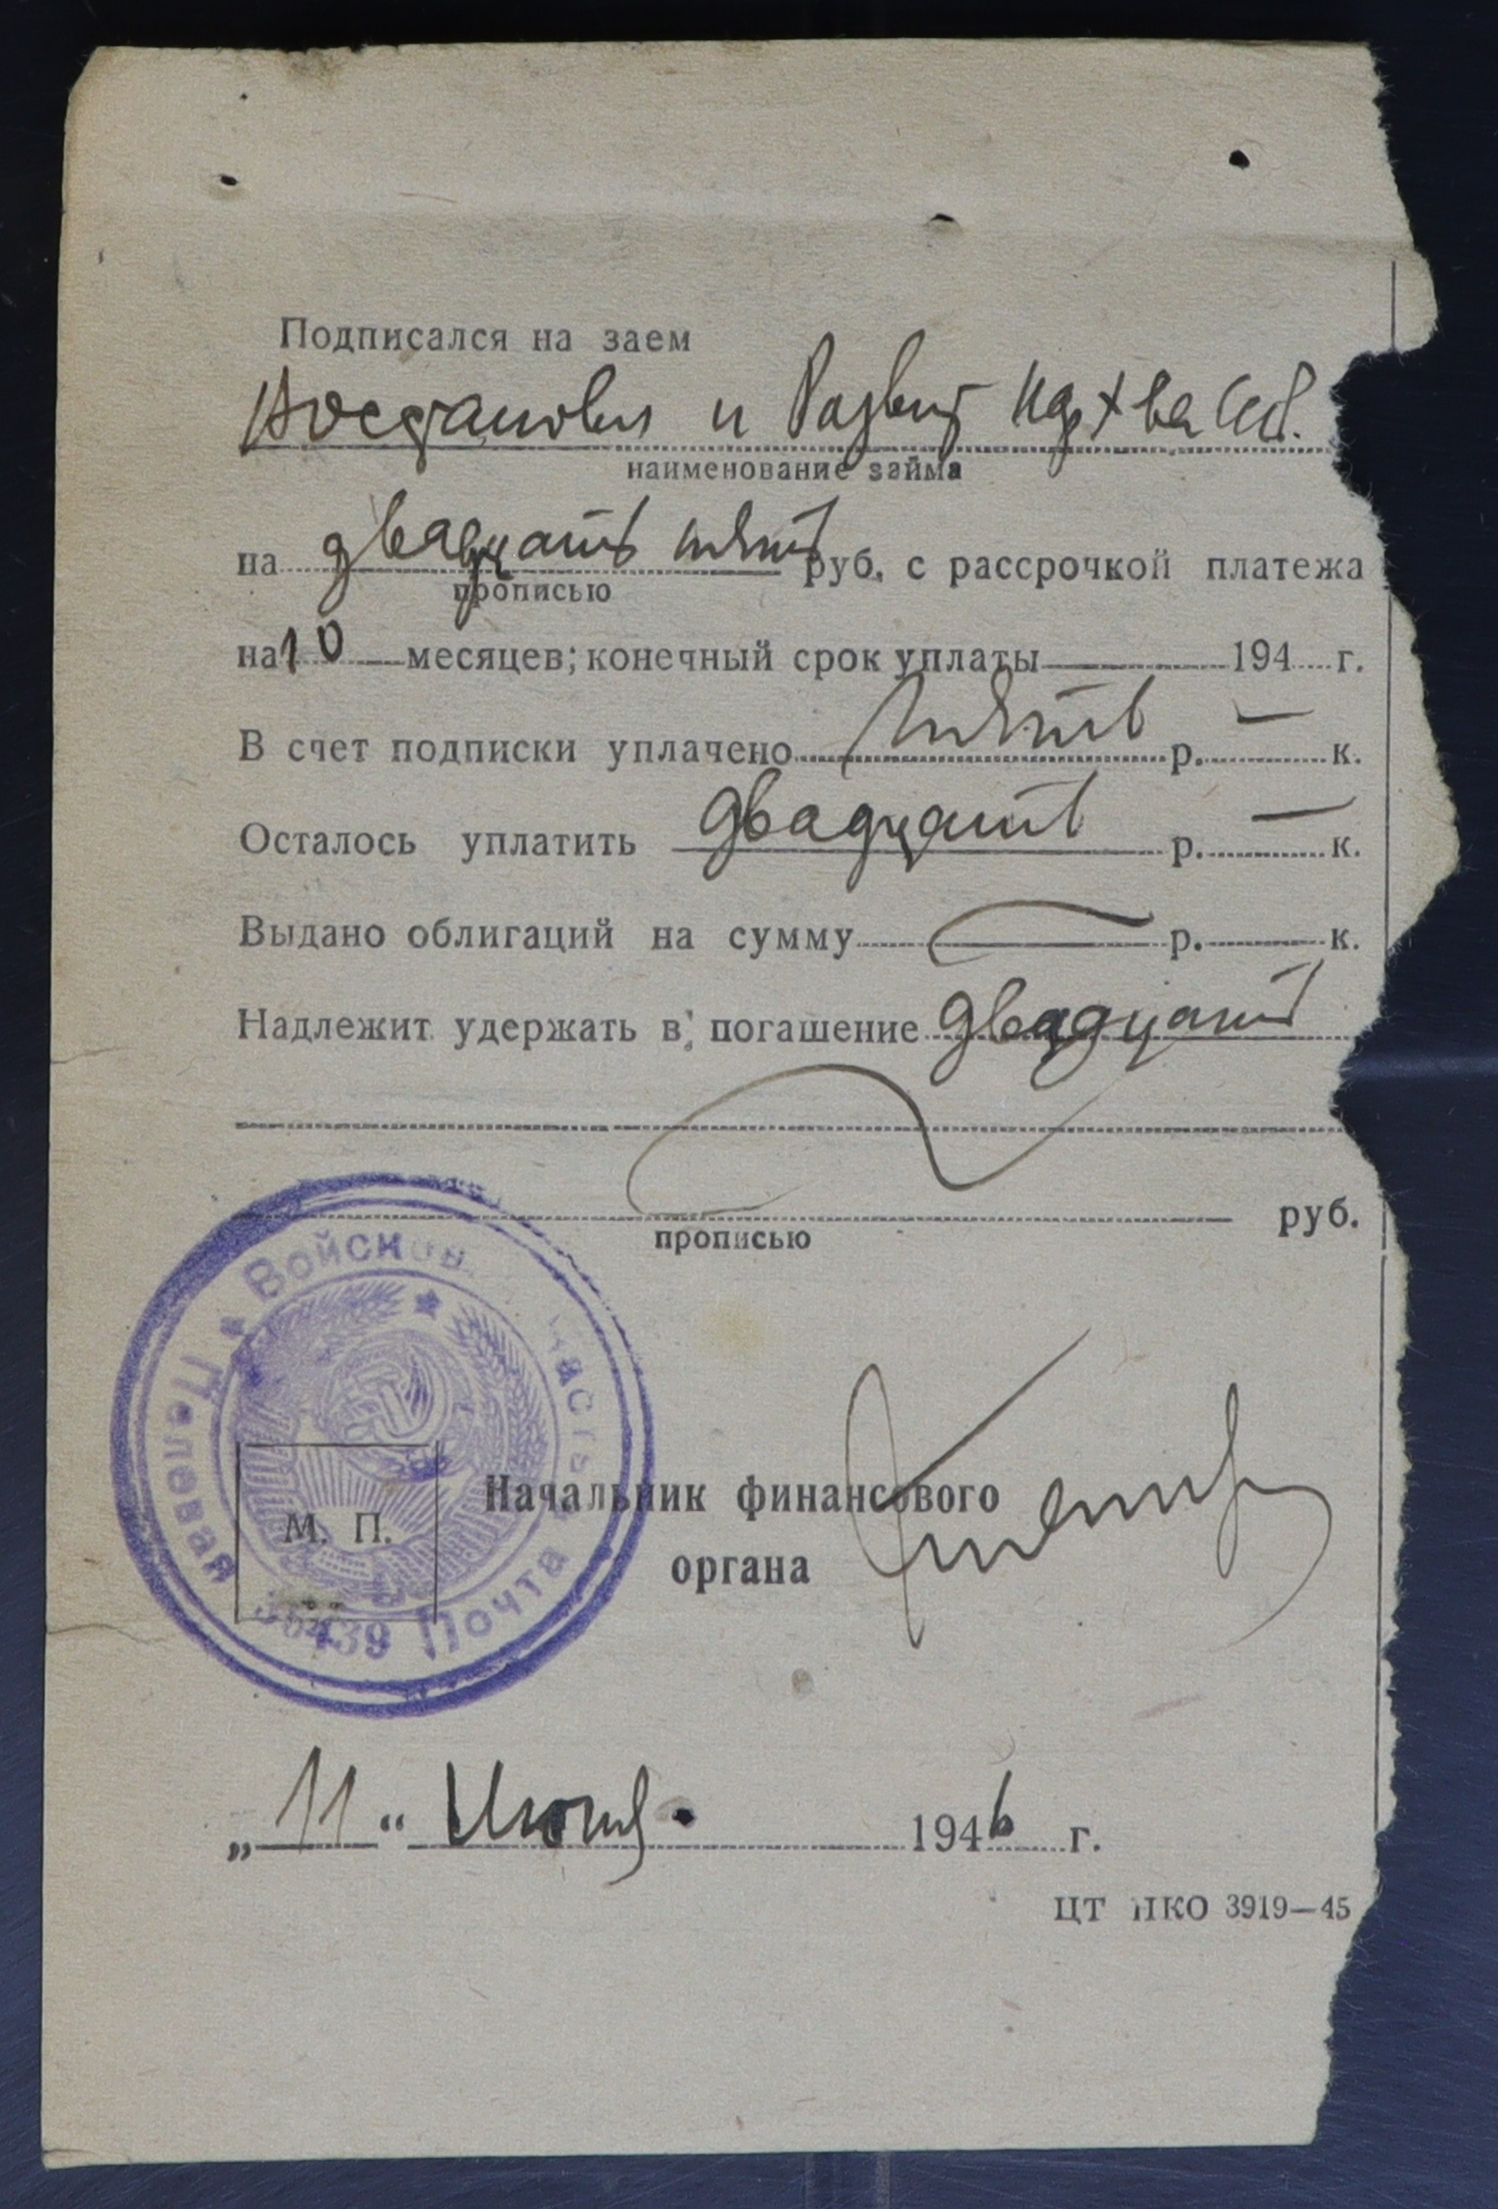 Подписался на заем
Восстановл и Развит Нар х ва СССР.
наименование займа
на двадцать пять руб. с рассрочкой платежа
прописью
на 10 месяцев; конечный срок уплаты 194 г.
В счет подписки уплачено пять р. — к.
Осталось уплатить двадцать р. — к.
Выдано облигаций на сумму — р. к.
Надлежит удержать в погашение двадцать
руб.
прописью
Войсков часть
Полевая Почта
36439
М. П.
Начальник финансового
органа
„11“ Июня 1946 г.
ЦТ НКО 3919—45